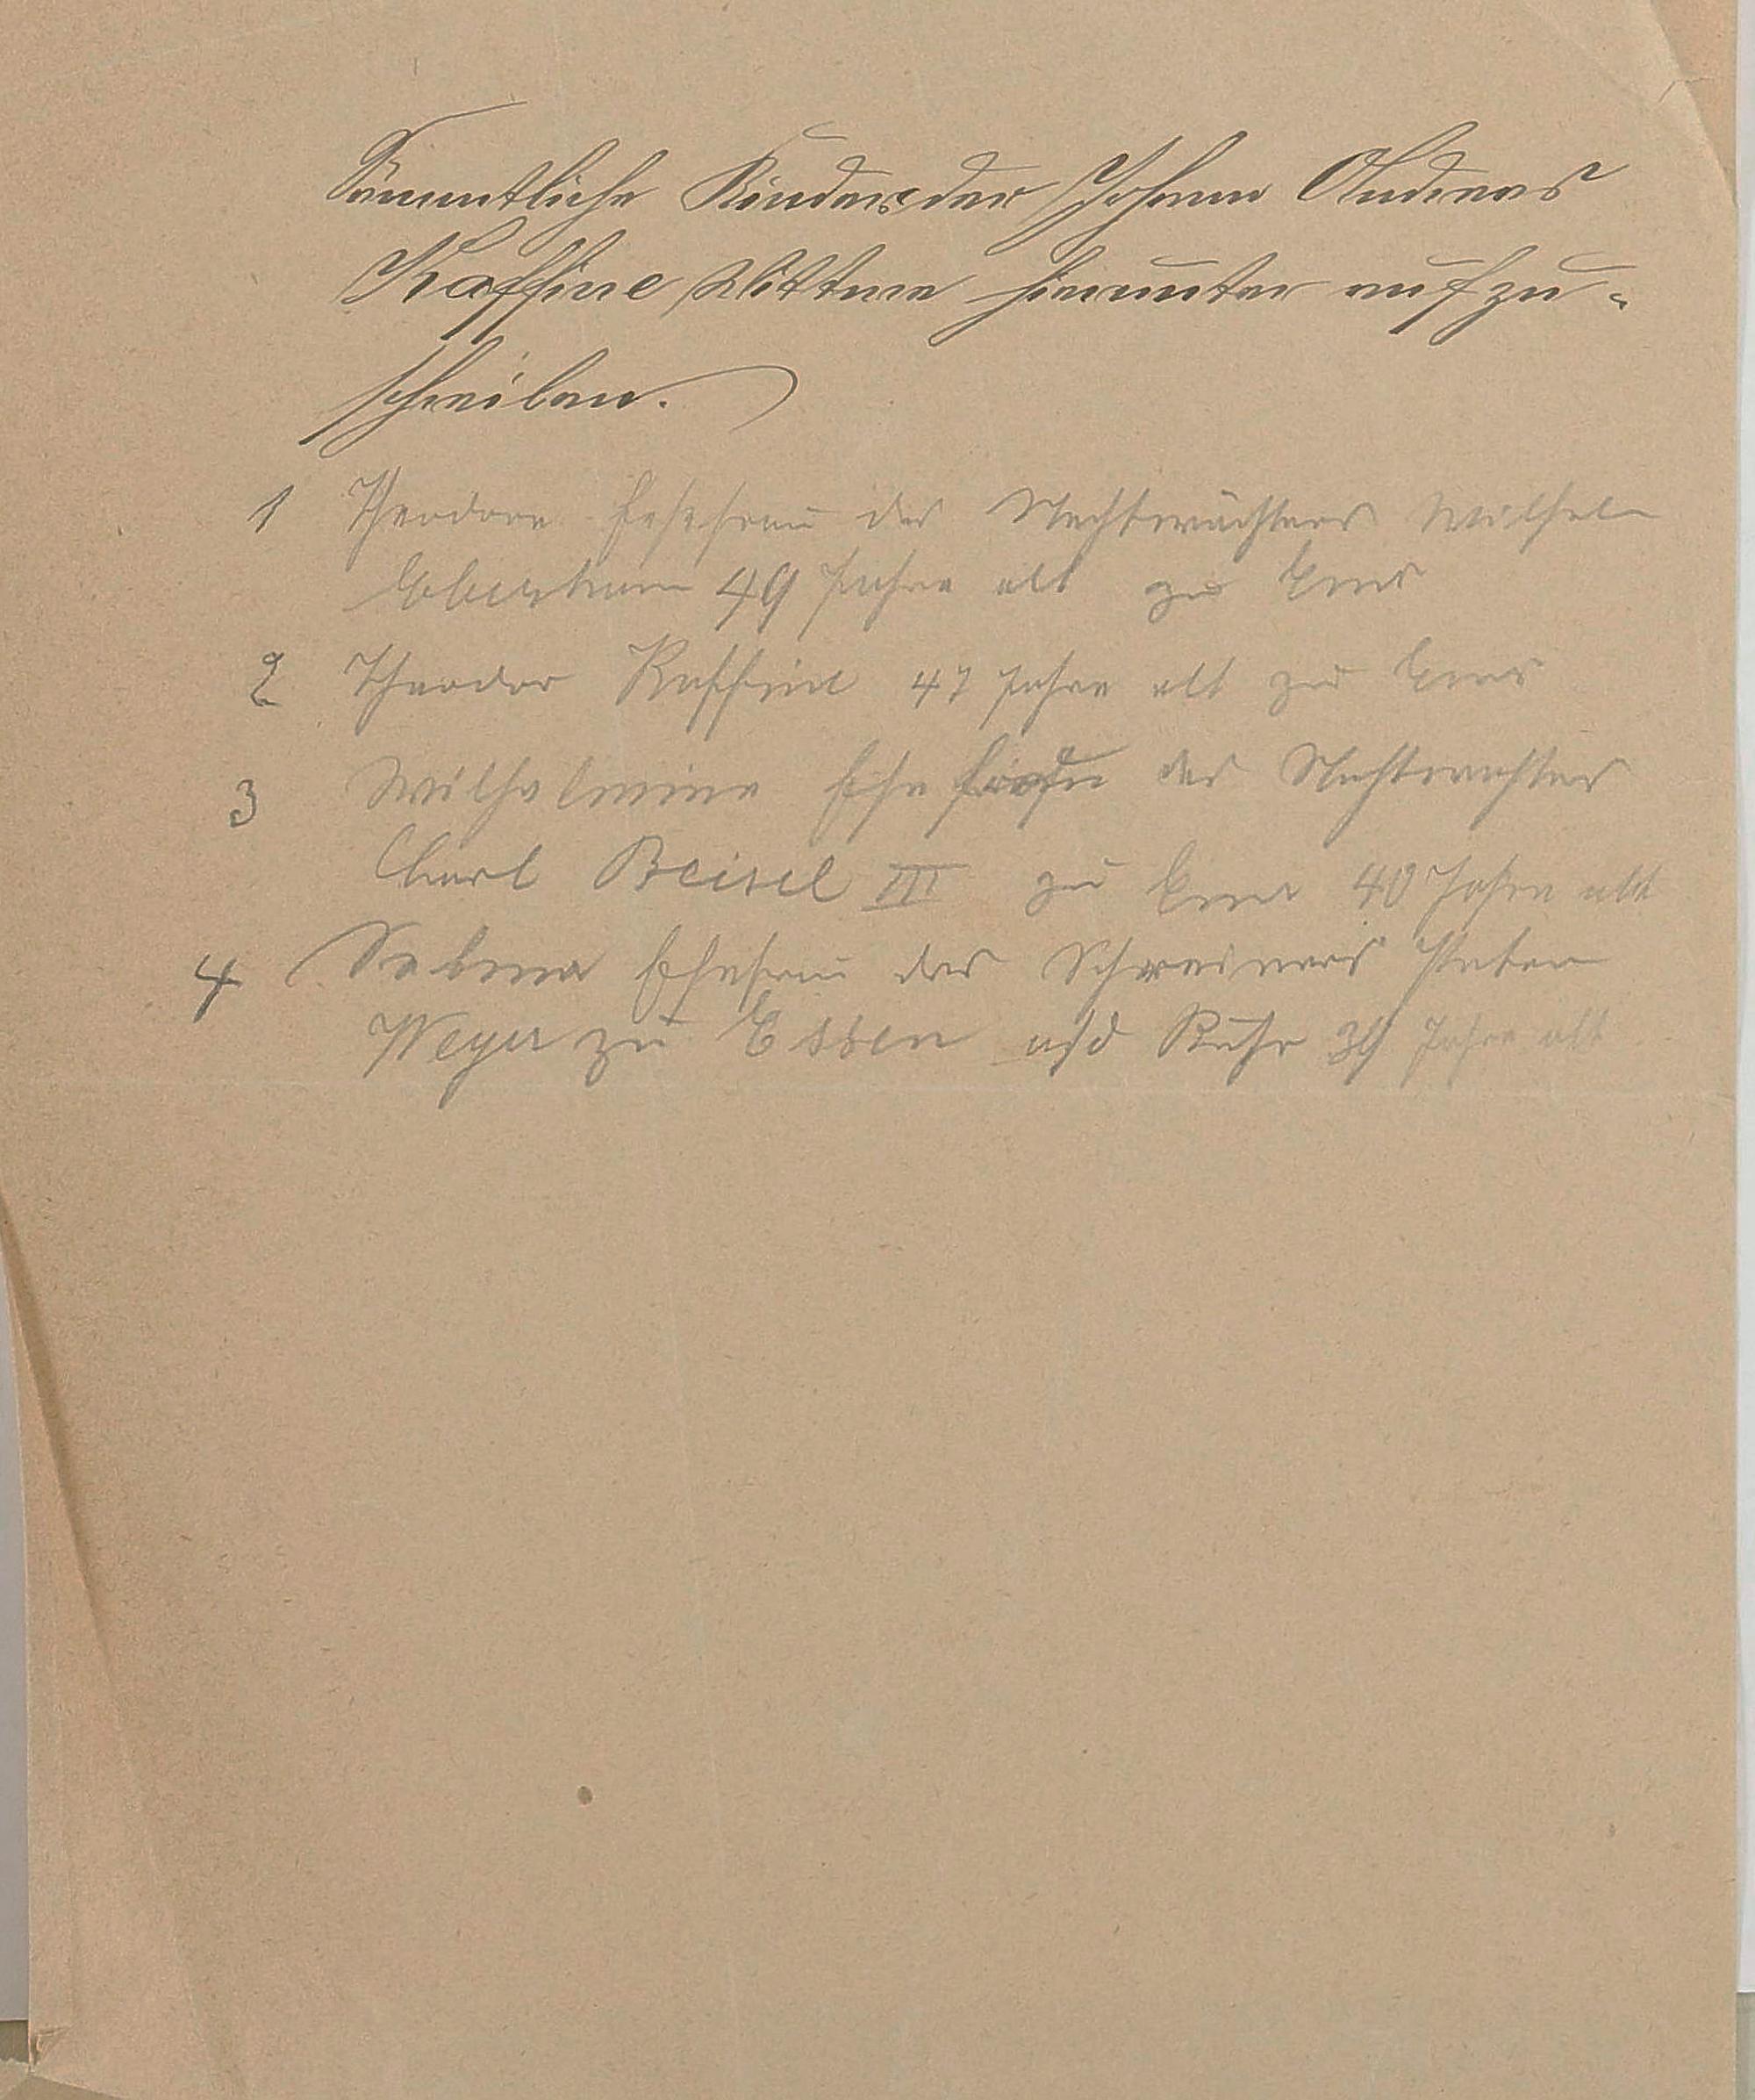 Sämmtliche Kinder der Johann Andreas
Kaffine Wittwe hierunter aufzu-
schreiben.
1 Theodore Ehefrau des Nachtwächters Wilhelm
49 Jahre alt zu Ems
2 Theodor Kaffine 47 Jahre alt zu Ems
3 Wilhelmine Ehefrau des Nachtwächters
Carl Beisel III zu Ems 40 Jahre alt
4 Sabina Ehefrau des Schreiners Peter
Weyer zu Essen a/d Ruhr Jahre alt